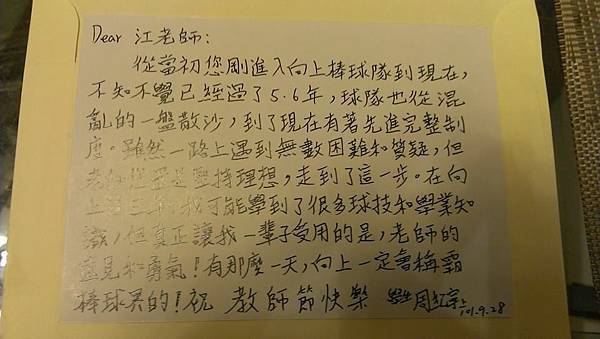 Dear 江老師:
從當初您剛進入向上棒球隊到現在,
不知不覺已經過了5.6年,球隊也從混
亂的一盤散沙,到了現在有著先進完整制
度。雖然一路上遇到無數困難和質疑,但
老師您還是堅持理想,走到了這一步。在向
上這三年,我可能學到了很多球技和學業知
識,但真正讓我一輩子受用的是,老師的
遠見和勇氣!有那麼一天,向上一定會稱霸
棒球界的!祝 教師節快樂 學生 周
101.9.28